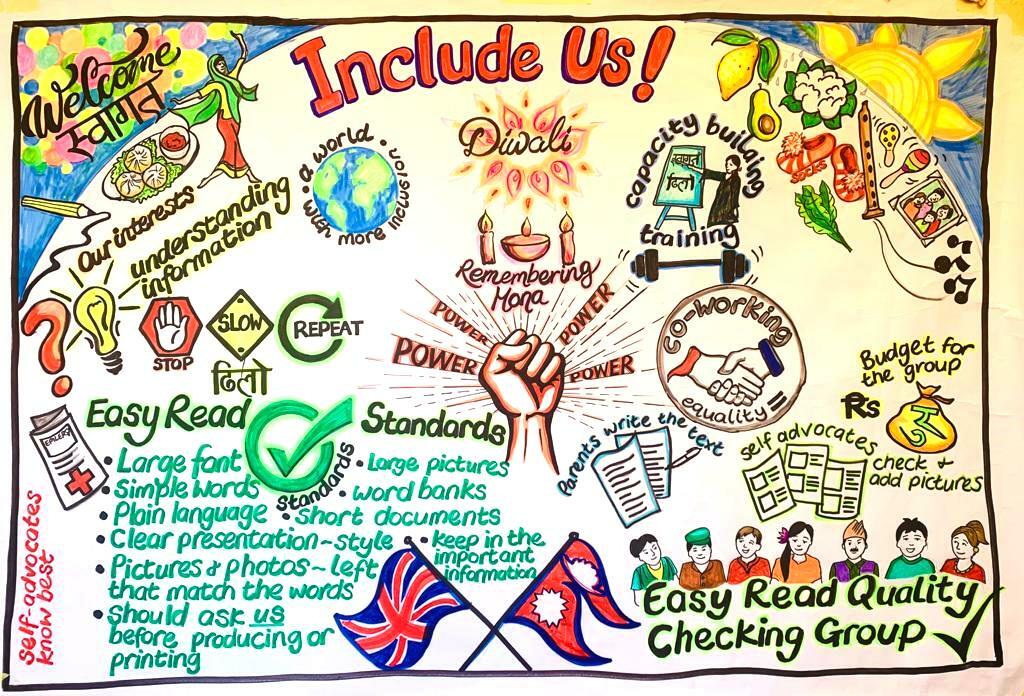 Include Us!
Welcome
स्वागत
Our interests
understanding
information
STOP
SLOW
ढिलो
REPEAT
a world • with more inclusion •
Diwali
Remembering
Mona
capacity building
स्वागत
ढिलो
training
POWER
POWER
POWER
POWER
co-working
equality =
Budget for
the group
Rs
रु
Easy Read Standards
Standards
• Large font
• Simple words
• Plain language
• Clear presentation ~ style
• Pictures & photos ~ left
that match the words
• Should ask us
before producing or
printing
• Large pictures
• word banks
• short documents
• keep in the
important
information
self-advocates
know best
Parents write the text
self advocates
check +
add pictures
Easy Read Quality
Checking Group